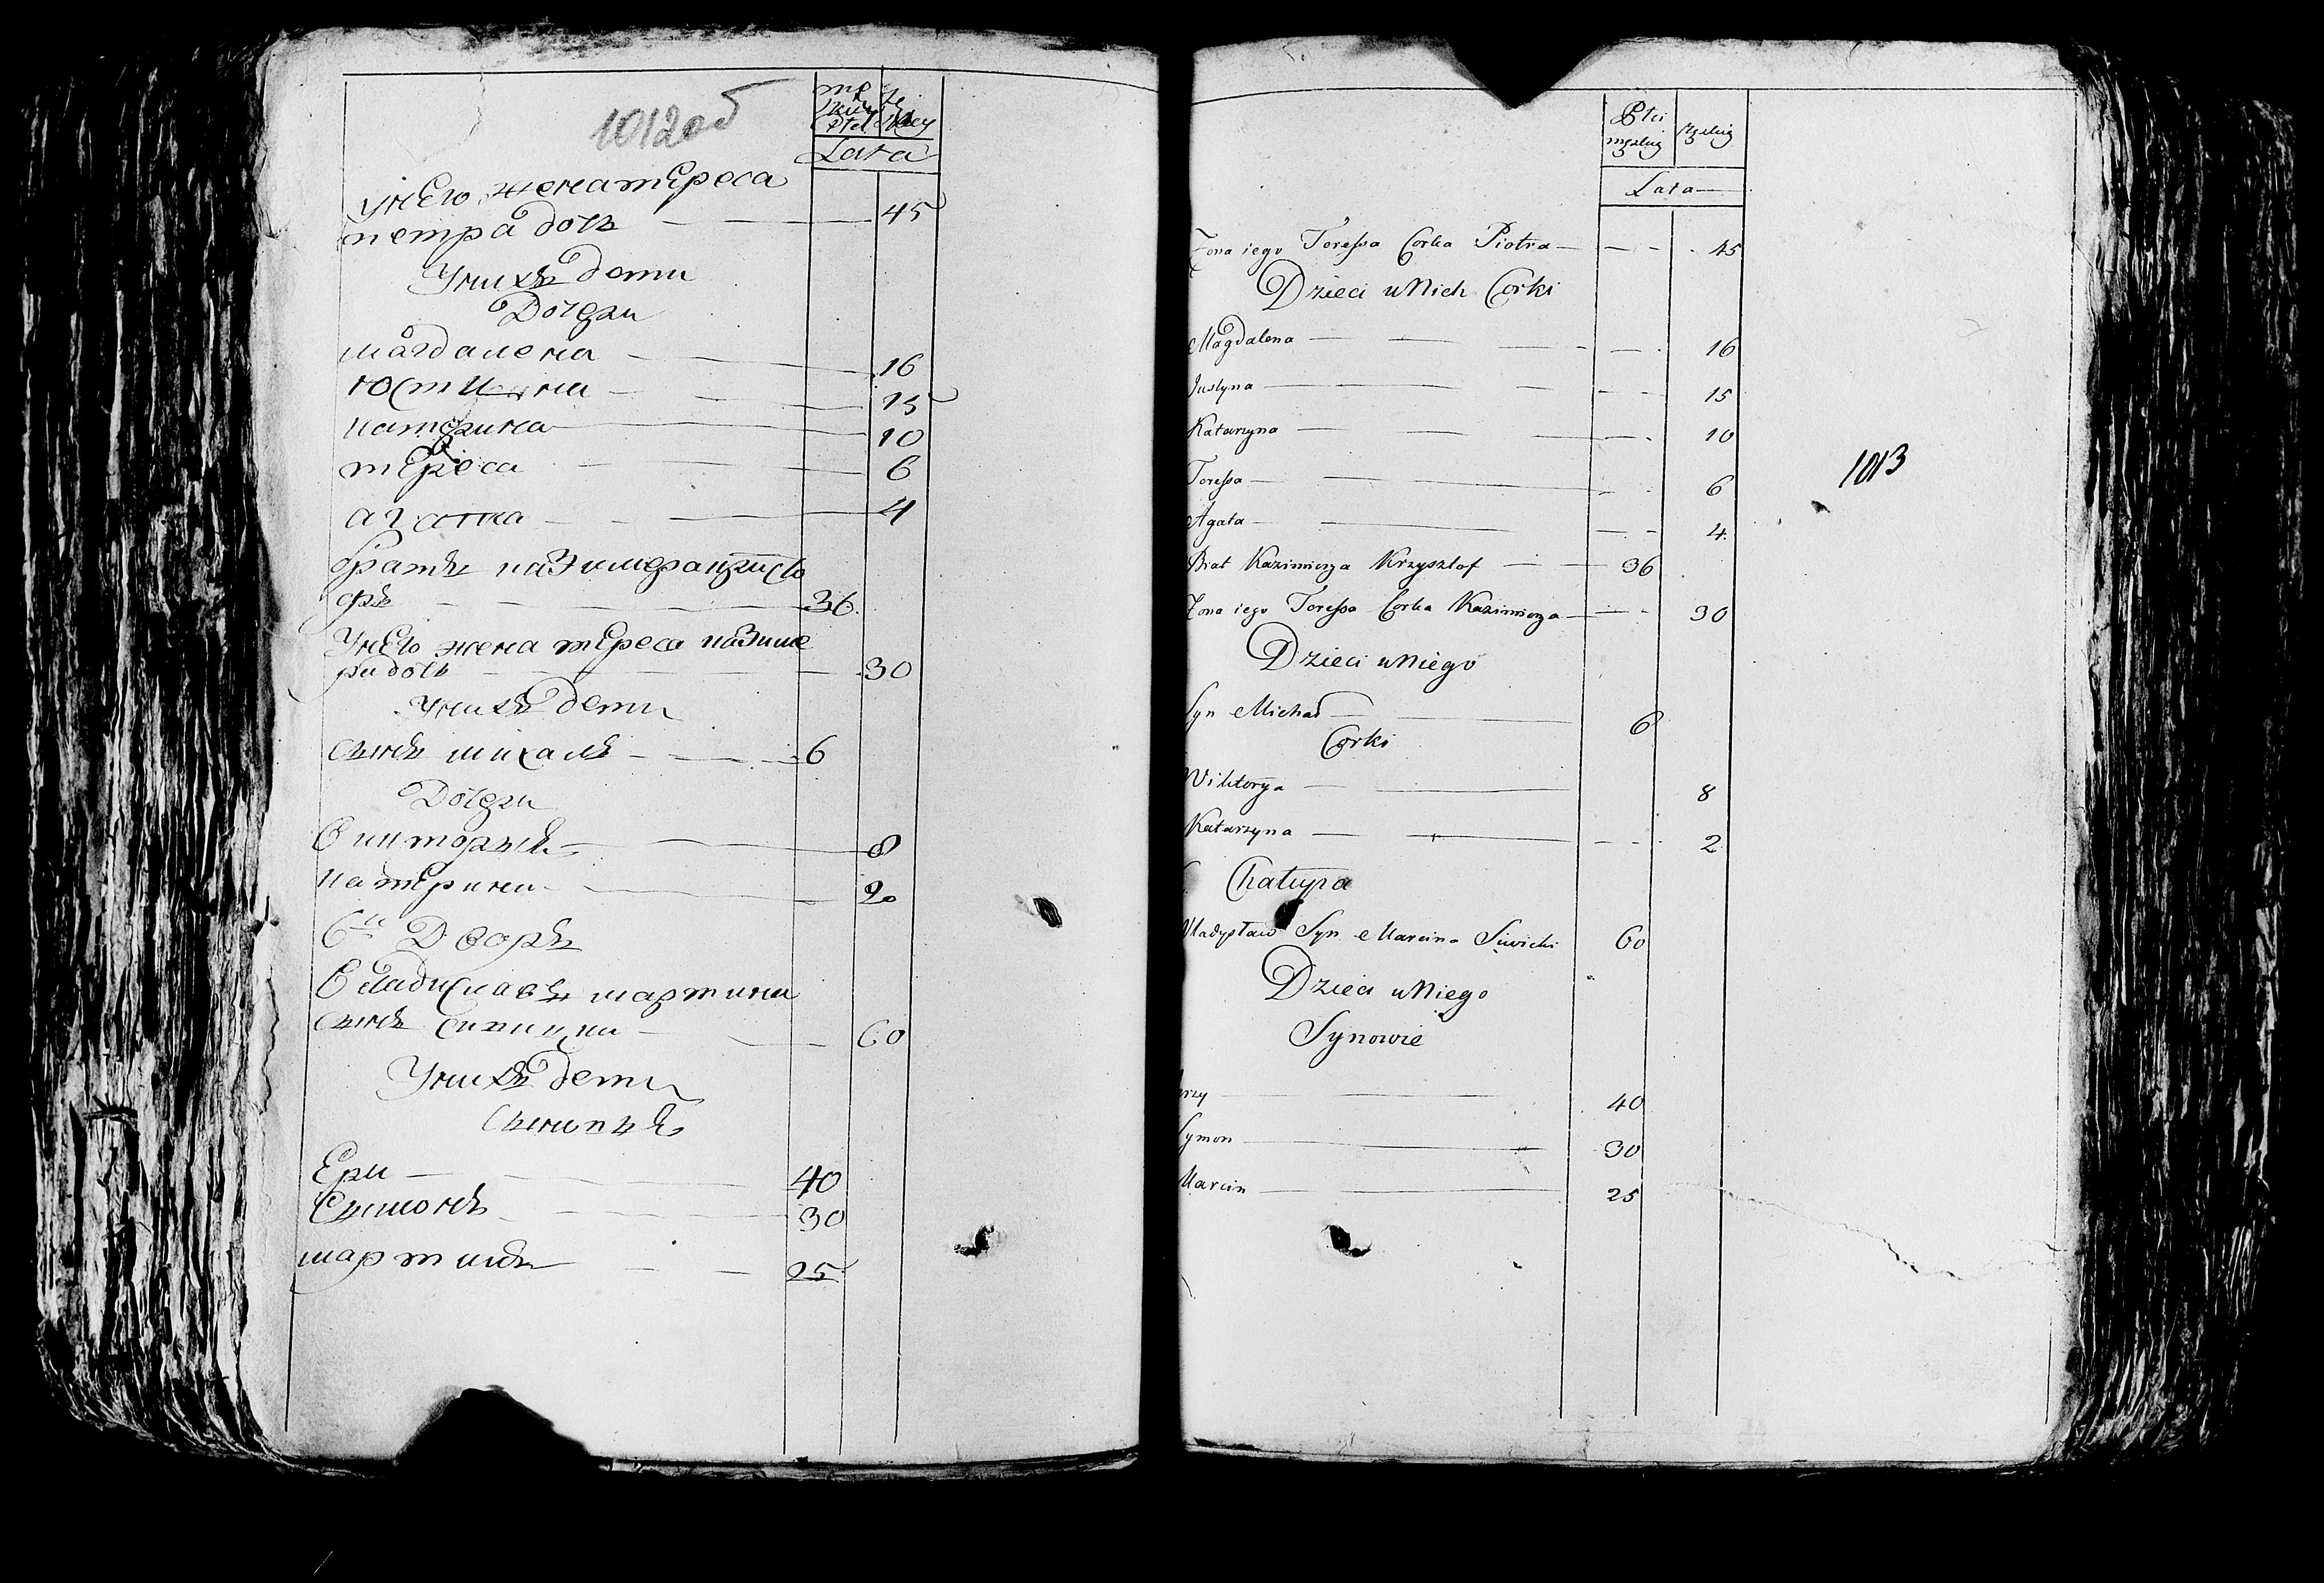 1012об
Лата
У него жена тереса 45
петра дочь
У них дети
Дочери
магдалена 16
Юстина 15
катерина 10
тереса 6
агатка 4
братъ казимера кристо
фъ 36
У него жена тереса казиме
ра дочь 30
У нихъ дети
сынъ михалъ 6
Дочери
викторыя 8
катерина 2
6й Дворъ
владиславъ мартина
сынъ 60
У нихъ дети
Ери 40
Сымонъ 30
мартинъ 25
Płci
męzkiej żeńskiej
Lata
Zona iego Teressa Corka Piotra 45
Dzieci u Nich Corki
Magdalena 16
Justyna 15
Katarzyna 10
Teressa 6
Agata 4
Brat Kazimierza Krzysztof 36
Zona iego Teressa Corka Kazimierza 30
Dzieci u Niego
Syn Michał 6
Corki
Wiktorya 8
Katarzyna 2
Chałupa
Władysław Syn Marcina Siwicki 60
Dzieci u Niego
Synowie
rzy 40
Symon 30
Marcin 25
1013